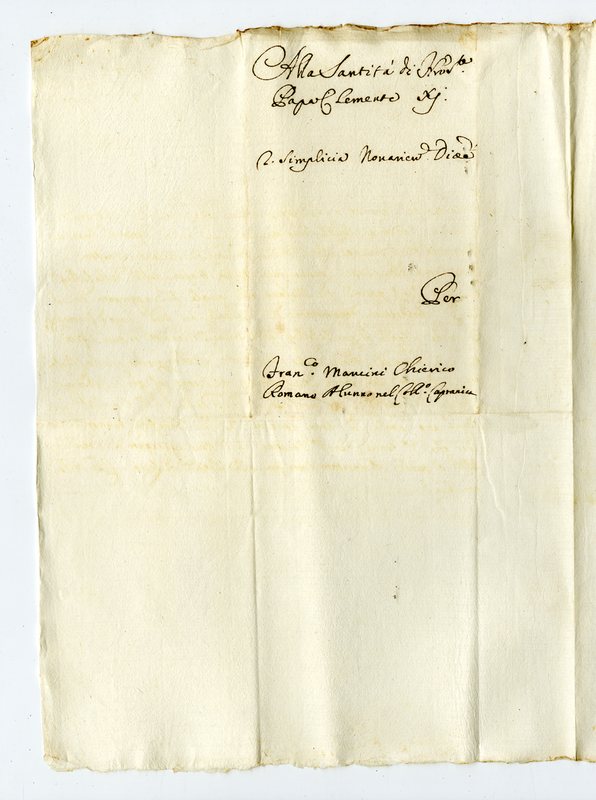 Alla Santità di Nro Sre
Papa Clemente XI.
Simplicia Novarien. Dioec.
Per
Franco. Mancini Chierico
Romano Alunno nel Coll.o Capranica